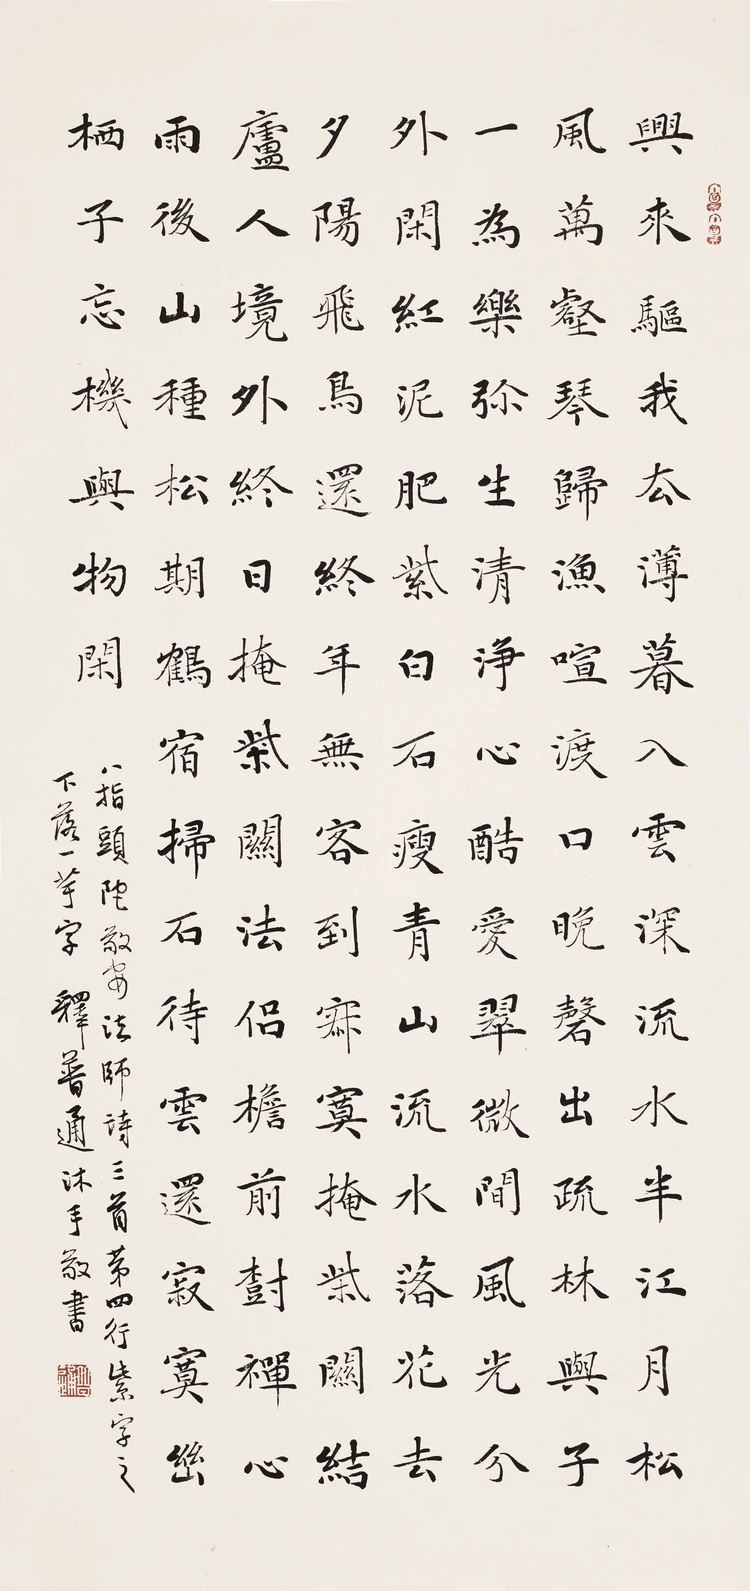 興來驅我厺薄暮入雲深流水半江月松
風萬壑琴歸漁喧渡口晚磬出疏林與子
一為樂弥生清淨心酷愛翠微間風光分
外閑紅泥肥紫白石瘦青山流水落花去
夕陽飛鳥還終年無客到寂寞掩柴關結
廬人境外終日掩柴關法侶檐前樹禪心
雨後山種松期鶴宿掃石待雲還寂寞幽
栖子忘機與物閑
八指頭陀敬安法師詩三首第四行紫字之
下落一芋字 釋普通沐手敬書